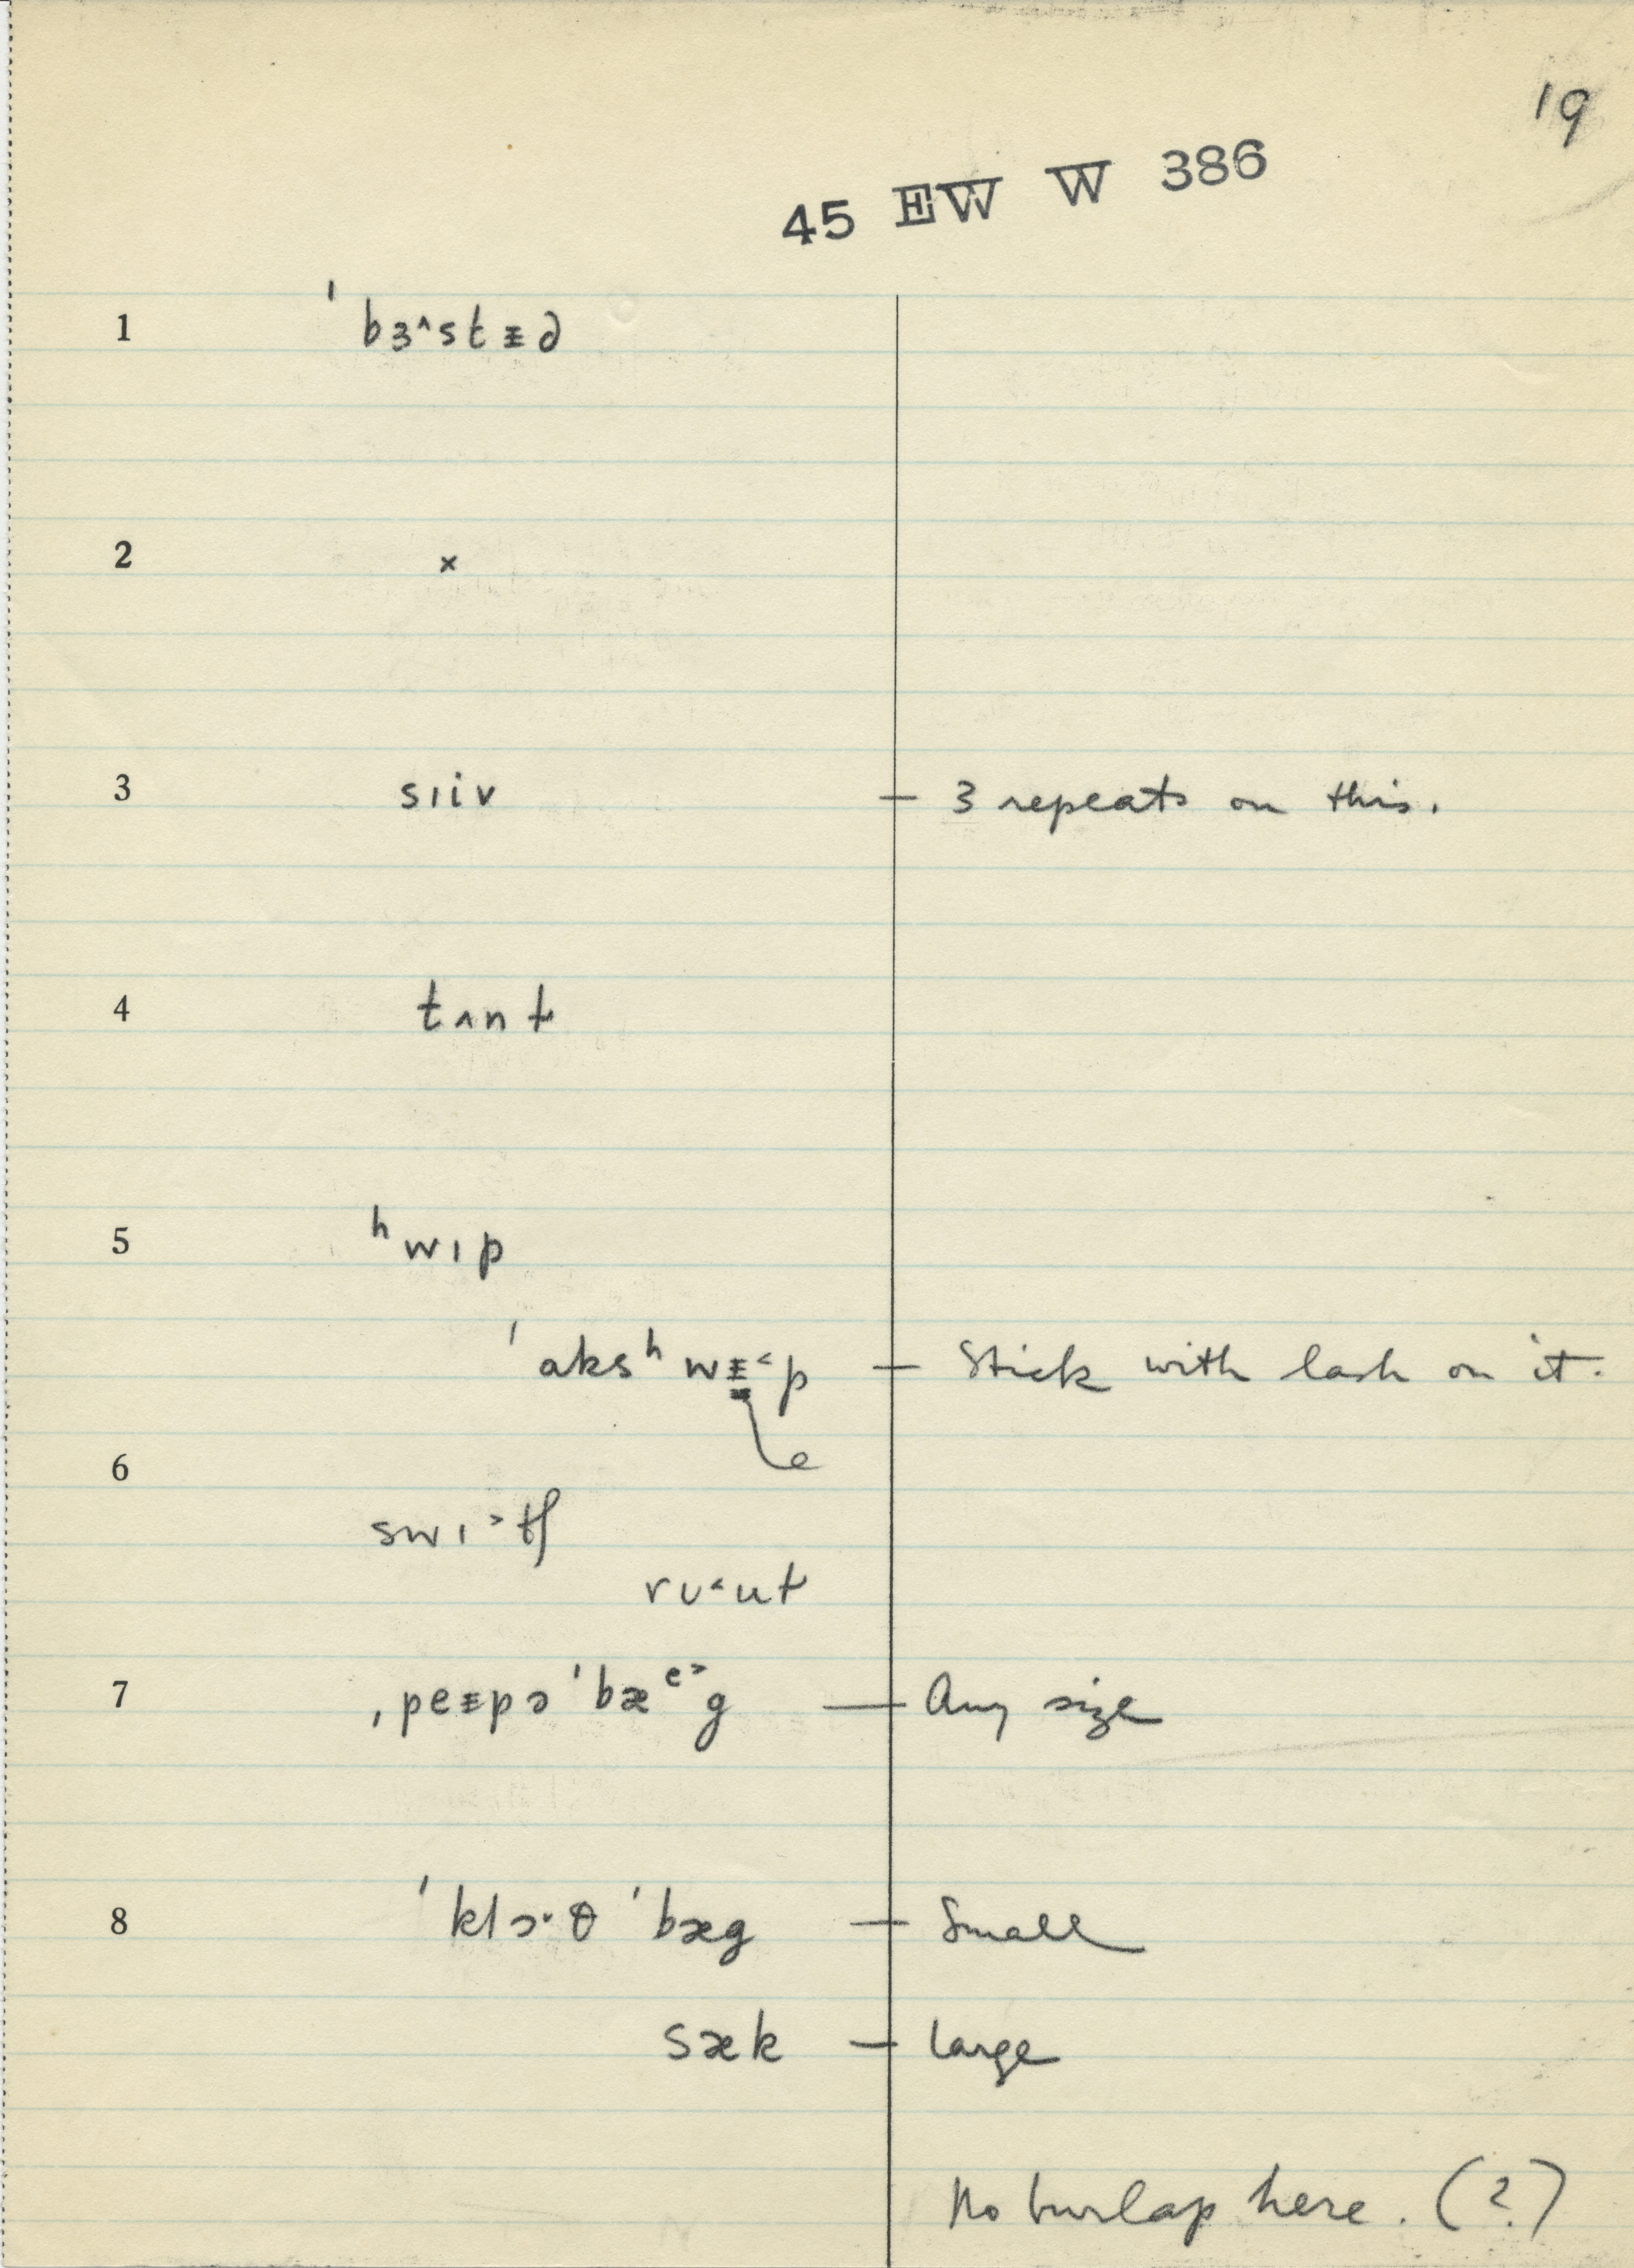 19
45 EW W 386
1 ˈbɜ^stᵻd
2 ×
3 sɪiv — 3 repeats on this.
4 tʌnt
5 ʰwɪp
ˈaksʰwᵻ˂p — Stick with lash on it.
e
6
swɪ˃tʃ
rʊ˂ut
7 ˌpeᵻpəˈbæᵉ˃g — Any size
8 ˈklɔ·θˈbæg — Small
sæk — large
No burlap here. (?)